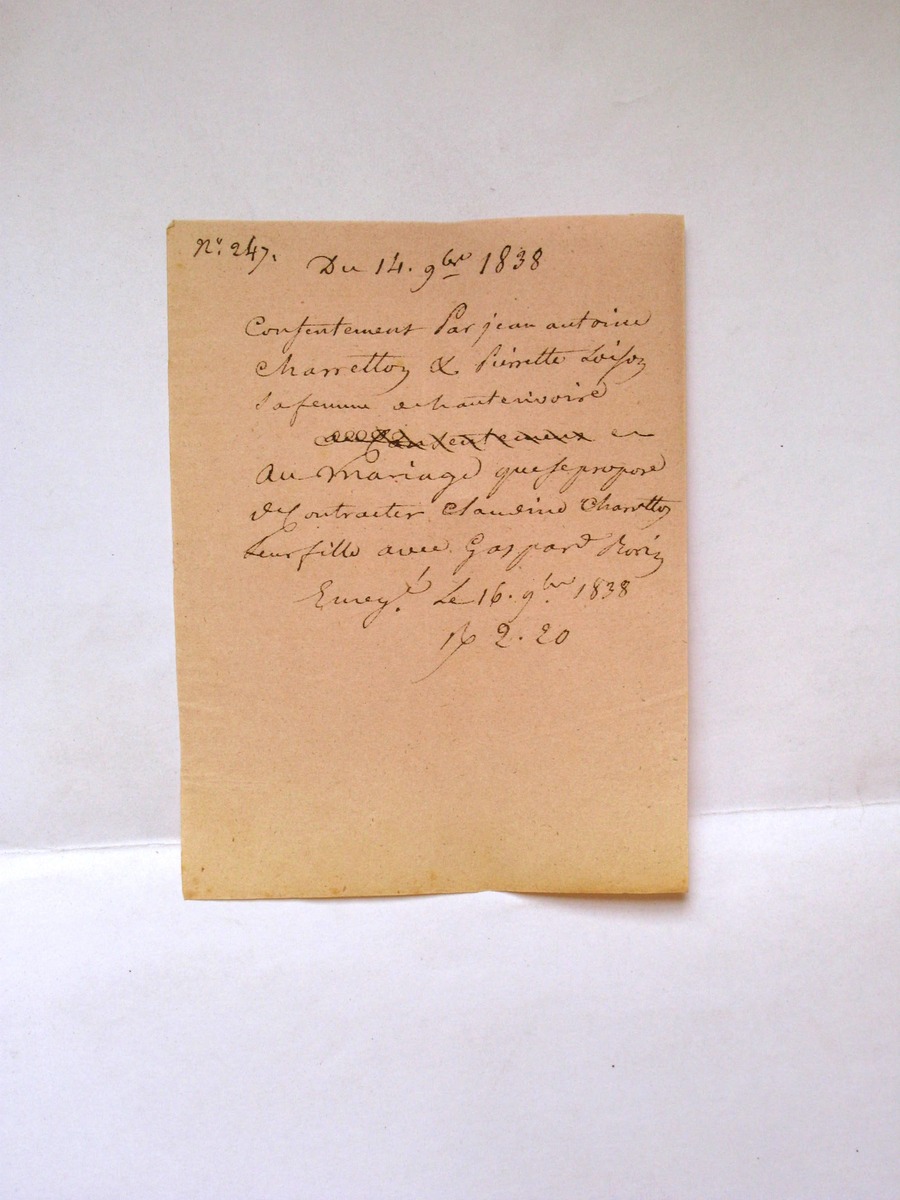 N.º 247.
Du 14. 9bre 1838
Consentement Par jean antoine
Charretton & Pierrette Loison
sa femme de hauterivoire
au mariage que se propose
de Contracter Claudine Charretton
Leur fille avec Gaspard
Enreg.t Le 16. 9bre 1838
2.20